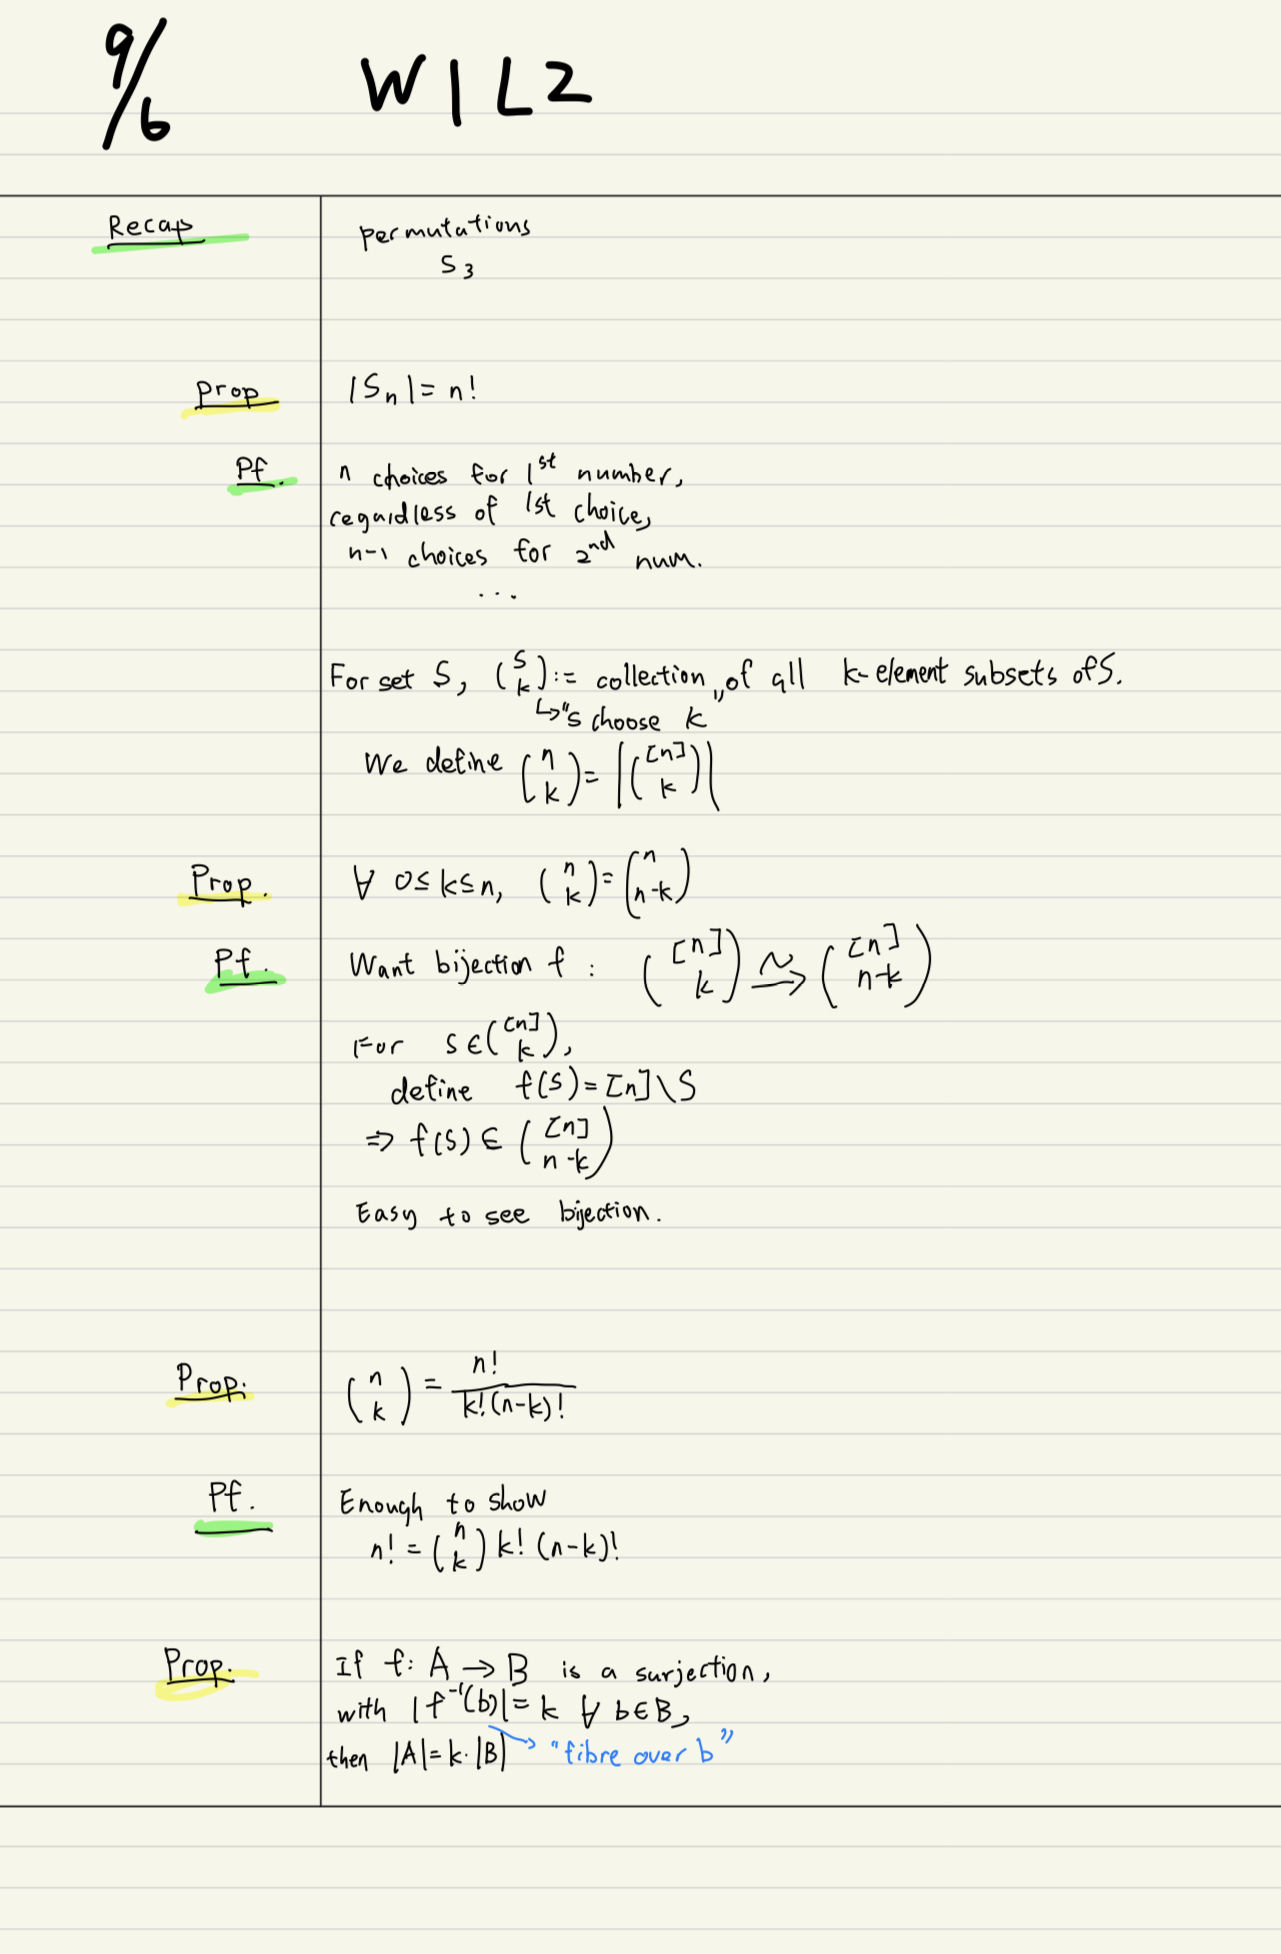 9/6 W1L2
Recap
permutations
S₃
Prop |Sₙ| = n!
Pf. n choices for 1st number,
regardless of 1st choice,
n-1 choices for 2nd num.
...
For set S, (S k) := collection of all k-element subsets of S.
↳ "S choose k"
We define (n k) = |([n] k)|
Prop. ∀ 0≤k≤n, (n k) = (n n-k)
Pf. Want bijection f: ([n] k) ⥲ ([n] n-k)
For S∈([n] k),
define f(S) = [n]\S
⇒ f(S) ∈ ([n] n-k)
Easy to see bijection.
Prop. (n k) = n!/k!(n-k)!
Pf. Enough to show
n! = (n k) k! (n-k)!
Prop. If f: A → B is a surjection,
with |f⁻¹(b)| = k ∀ b∈B,
then |A| = k·|B| → "fibre over b"